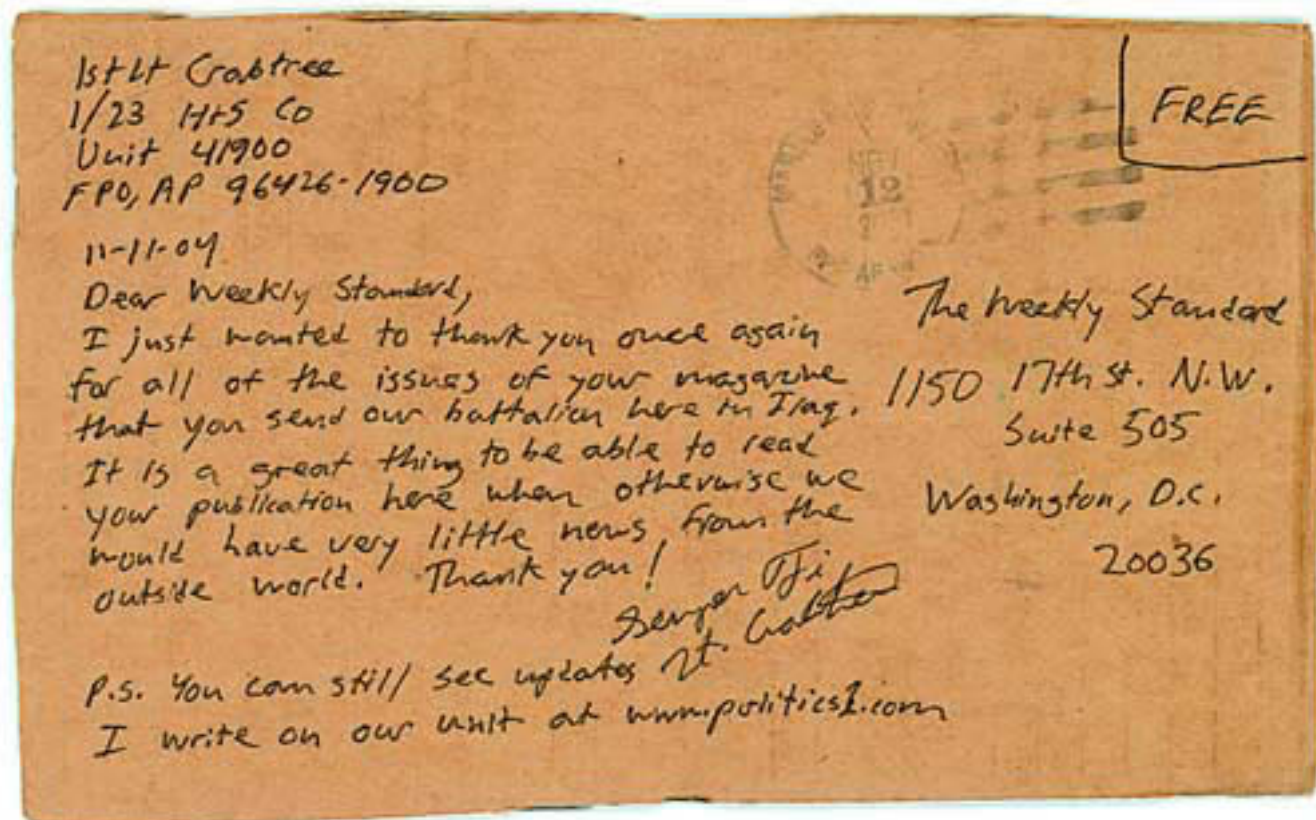 1stLt Crabtree
1/23 H+S Co
Unit 41900
FPO, AP 96426-1900
FREE
12
11-11-04
Dear Weekly Standard,
I just wanted to thank you once again
for all of the issues of your magazine
that you send our battalion here in Iraq.
It is a great thing to be able to read
your publication here when otherwise we
would have very little news from the
outside world. Thank you!
Semper Fi
Lt. Crabtree
P.S. You can still see updates
I write on our unit at www.politics1.com
The Weekly Standard
1150 17th St. N.W.
Suite 505
Washington, D.C.
20036